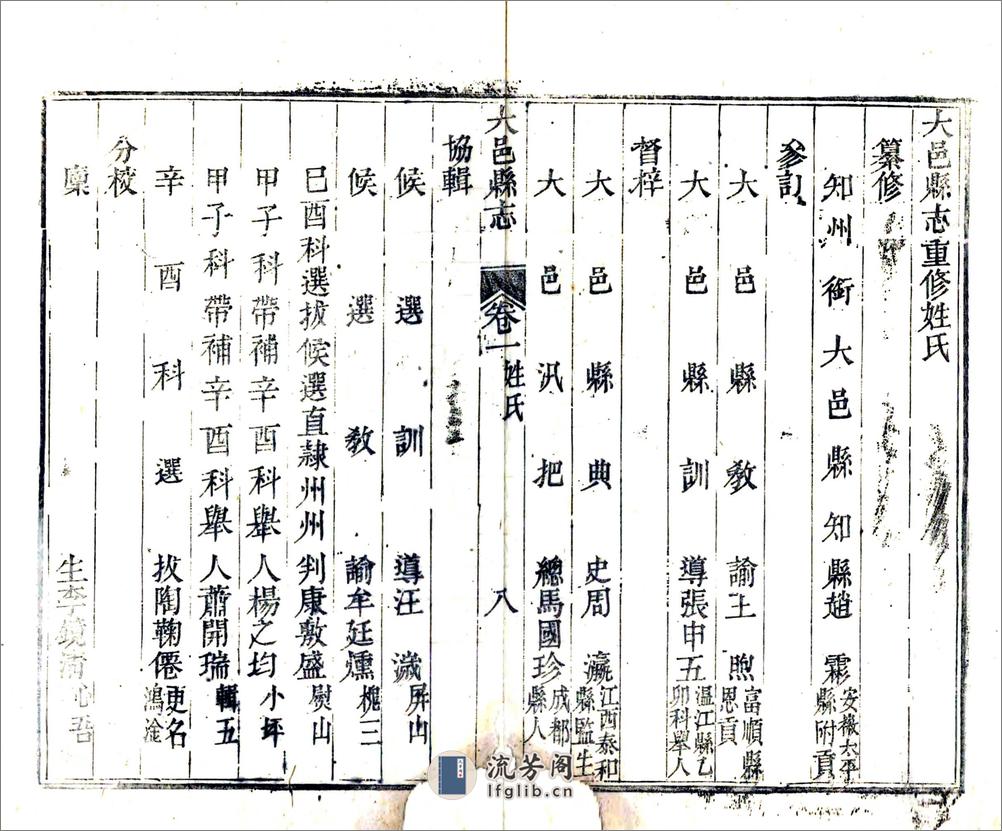 大邑縣志重修姓氏
纂修
知州銜大邑縣知縣趙霦安徽太平縣附貢
參訂
大邑縣教諭王煦富順縣恩貢
大邑縣訓導張申五溫江縣乙卯科舉人
督梓
大邑縣典史周瀛江西泰和縣監生
大邑汛把總馬國珍成都縣人
大邑縣志 卷一 姓氏 八
協輯
候選訓導汪濊屏山
候選教諭牟廷燻槐三
己酉科選拔候選直隷州州判康敷盛熨山
甲子科帶補辛酉科舉人楊之均小坪
甲子科帶補辛酉科舉人蕭開瑞輯五
辛酉科選拔陶鞠僊更名鴻淦
分校
廩生李鏡湳心吾
流芳阁
lfglib.cn